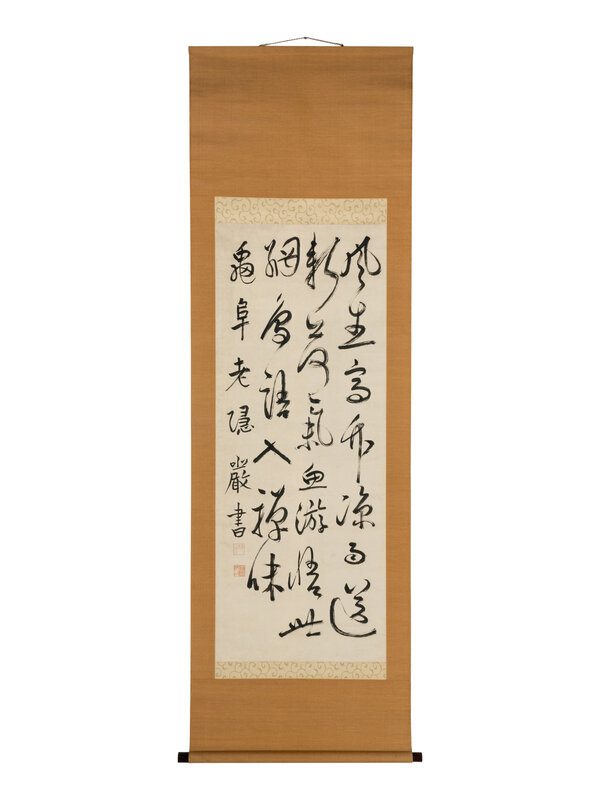 風生高竹涼雨送
新荷氣魚游悟世
網鳥語入禪味
龜阜老隱巖書